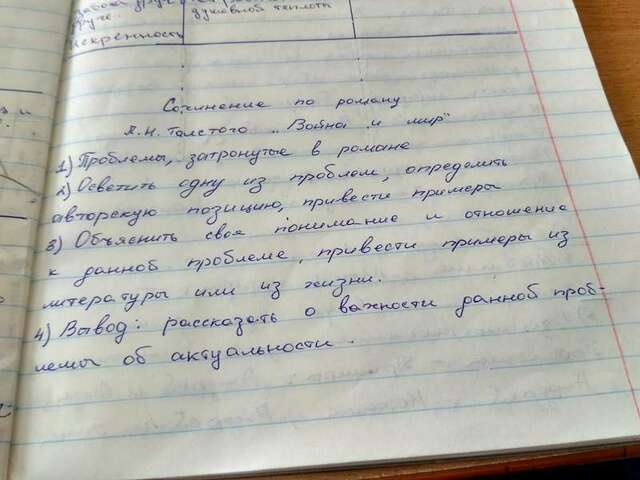 друге.
Искренность
душевной теплоты
Сочинение по роману
Л.Н. Толстого „Война и мир"
1) Проблемы, затронутые в романе
2) Осветить одну из проблем, определить
авторскую позицию, привести примеры
3) Объяснить свое понимание и отношение
к данной проблеме, привести примеры из
литературы или из жизни.
4) Вывод: рассказать о важности данной проб-
лемы об актуальности.